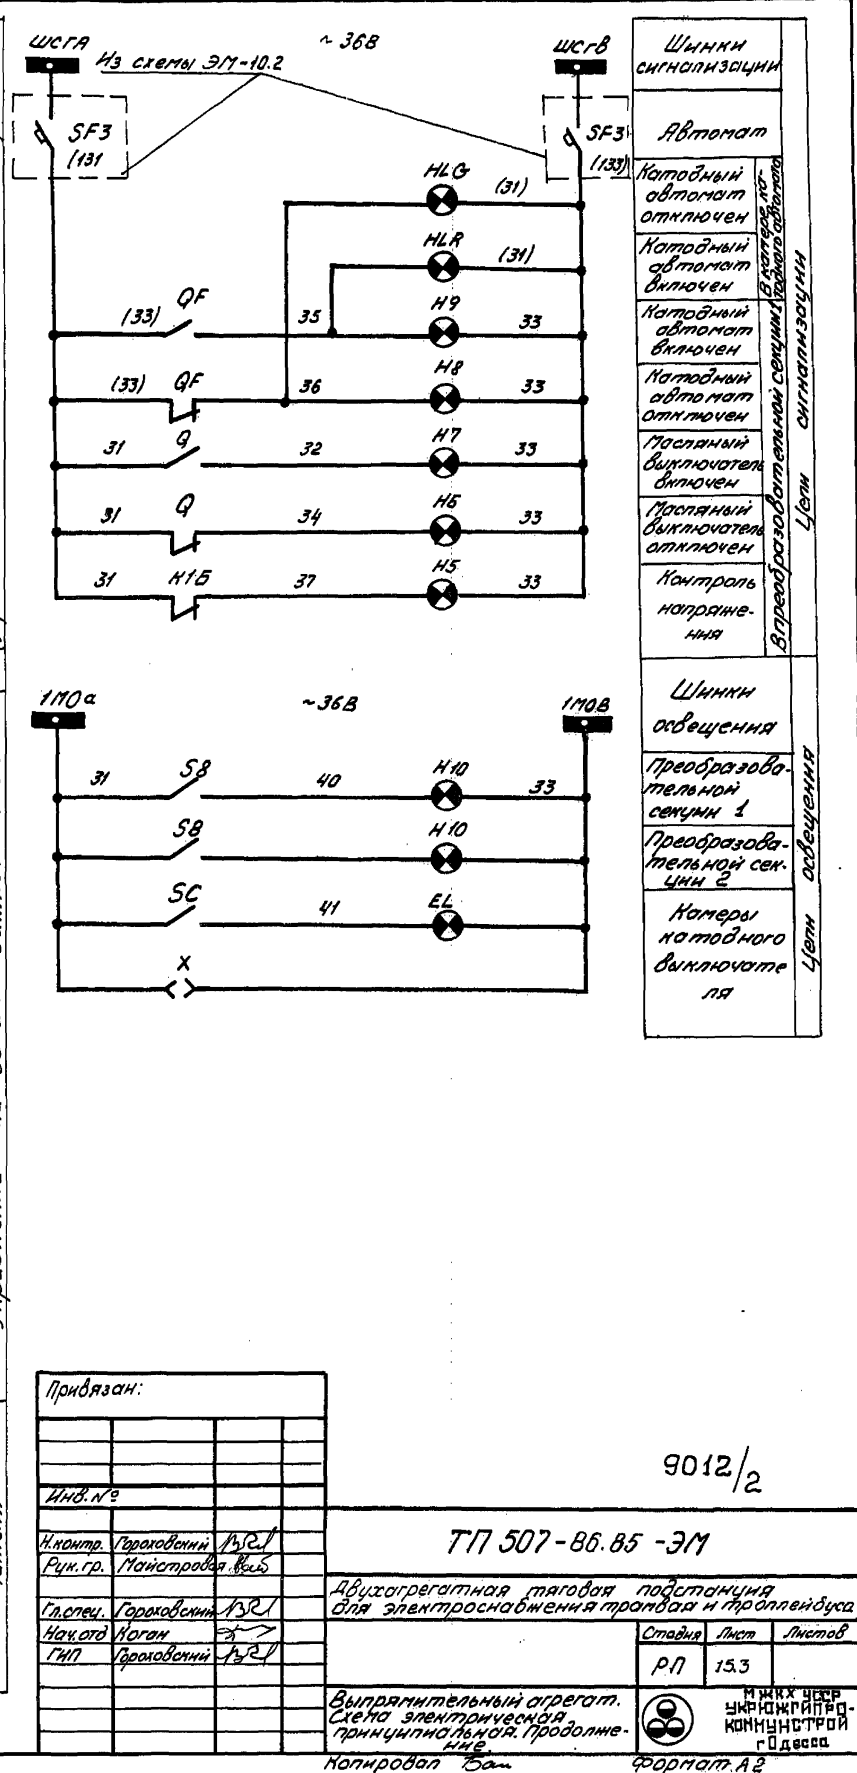 ШСГА
~36В
ШСГВ
Из схемы ЭМ-10.2
SF3
(131
SF3
(133)
HLG
(31)
HLR
(31)
(33)
QF
35
H9
33
(33)
QF
36
H8
33
31
Q
32
H7
33
31
Q
34
H6
33
31
К1Б
37
H5
33
Шинки
сигнализации
Автомат
Катодный
автомат
отключен
Катодный
автомат
включен
В камере ка-
тодного автомата
Катодный
автомат
включен
Катодный
автомат
отключен
Масляный
выключатель
включен
Масляный
выключатель
отключен
Контроль
напряже-
ния
В преобразовательной секции 1
Цепи сигнализации
1МОа
~36В
1МОВ
31
S8
40
H10
33
S8
H10
SC
41
EL
X
Шинки
освещения
Преобразова-
тельной
секции 1
Преобразова-
тельной сек-
ции 2
Камеры
катодного
выключате
ля
Цепи освещения
Привязан:
Инв. №
9012/2
Н.контр. Гороховский
Рук. гр. Майстровая
Гл.спец. Гороховский
Нач.отд Коган
ГИП Гороховский
ТП 507-86.85 -ЭМ
Двухагрегатная тяговая подстанция
для электроснабжения трамвая и троллейбуса
Стадия Лист Листов
РП 15.3
Выпрямительный агрегат.
Схема электрическая
принципиальная. Продолже-
ние.
МЖКХ УССР
УКРЮЖГИПРО-
КОММУНСТРОЙ
г Одесса
Копировал
Формат А2